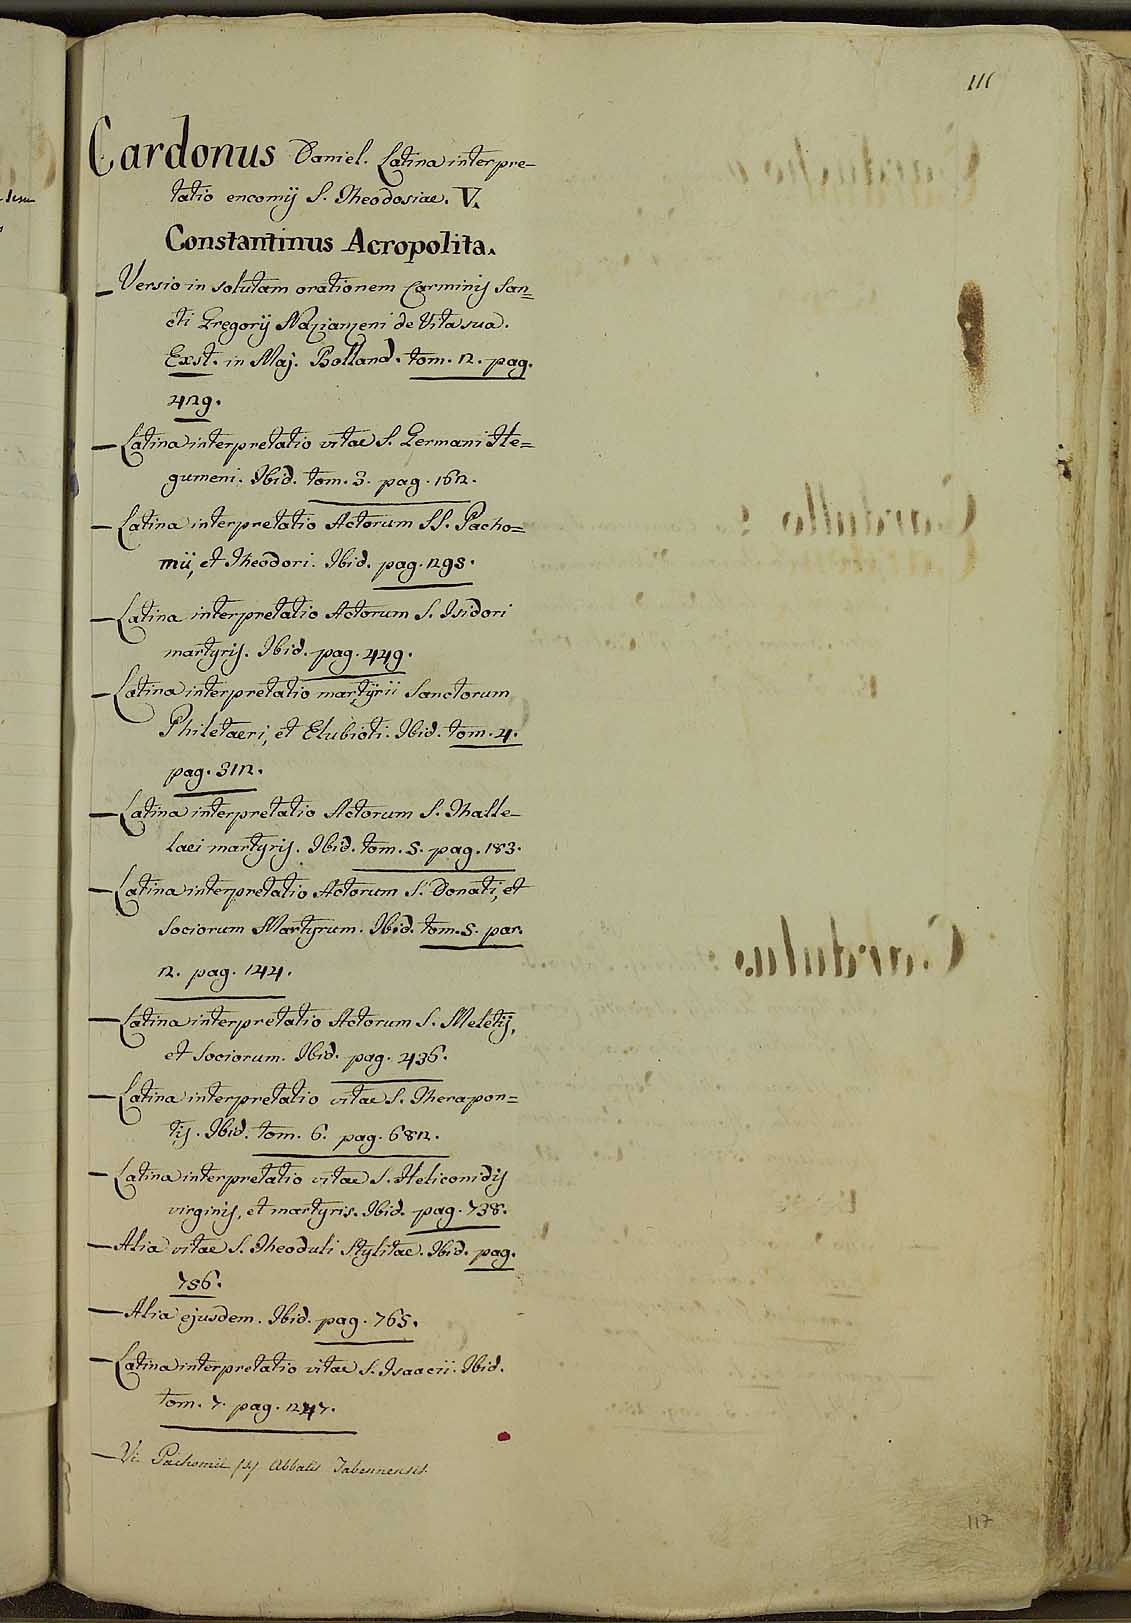 111
Cardonus Daniel. Latina interpre-
tatio encomij S. Theodosiae. V.
Constantinus Acropolita.
— Versio in solutam orationem Carminis San=
cti Gregorij Nazianzeni de Vita sua.
Exst. in Maj. Bolland. tom. 2. pag.
429.
— Latina interpretatio vitae S. Germani He=
gumeni. Ibid. tom. 3. pag. 162.
— Latina interpretatio Actorum SS. Pacho=
mii, et Theodori. Ibid. pag. 295.
— Latina interpretatio Actorum S. Isidori
martyris. Ibid. pag. 449.
— Latina interpretatio martyrii Sanctorum
Philetaeri, et Eubioti. Ibid. tom. 4.
pag. 312.
— Latina interpretatio Actorum S. Thalle-
laei martyris. Ibid. tom. 5. pag. 183.
— Latina interpretatio Actorum S. Donati, et
Sociorum Martyrum. Ibid. tom. 5. par.
2. pag. 144.
— Latina interpretatio Actorum S. Meletij,
et Sociorum. Ibid. pag. 436.
— Latina interpretatio vitae S. Therapon=
tis. Ibid. tom. 6. pag. 682.
— Latina interpretatio vitae S. Heliconidis
virginis, et martyris. Ibid. pag. 738.
— Alia vitae S. Theoduli Stylitae. Ibid. pag.
756.
— Alia ejusdem. Ibid. pag. 765.
— Latina interpretatio vitae S. Isaacii. Ibid.
tom. 7. pag. 247.
— V. Pachomii (S) Abbatis Tabennensis.
117